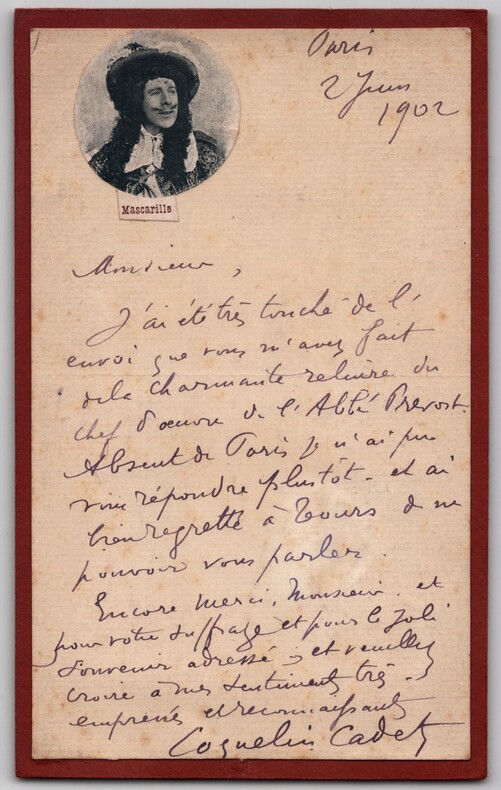 Paris
2 Juin
1902
Mascarille
Monsieur,
J'ai été très touché de l'
envoi que vous m'avez fait
de la charmante reliure du
chef d'œuvre de l'Abbé Prevost.
Absent de Paris je n'ai pu
vous répondre plustôt - et ai
bien regretté à Tours de ne
pouvoir vous parler.
Encore merci, Monsieur, et
pour votre suffrage et pour le joli
souvenir adressé ; et veuillez
croire à mes sentiments très
empressés et reconnaissants
Coquelin Cadet